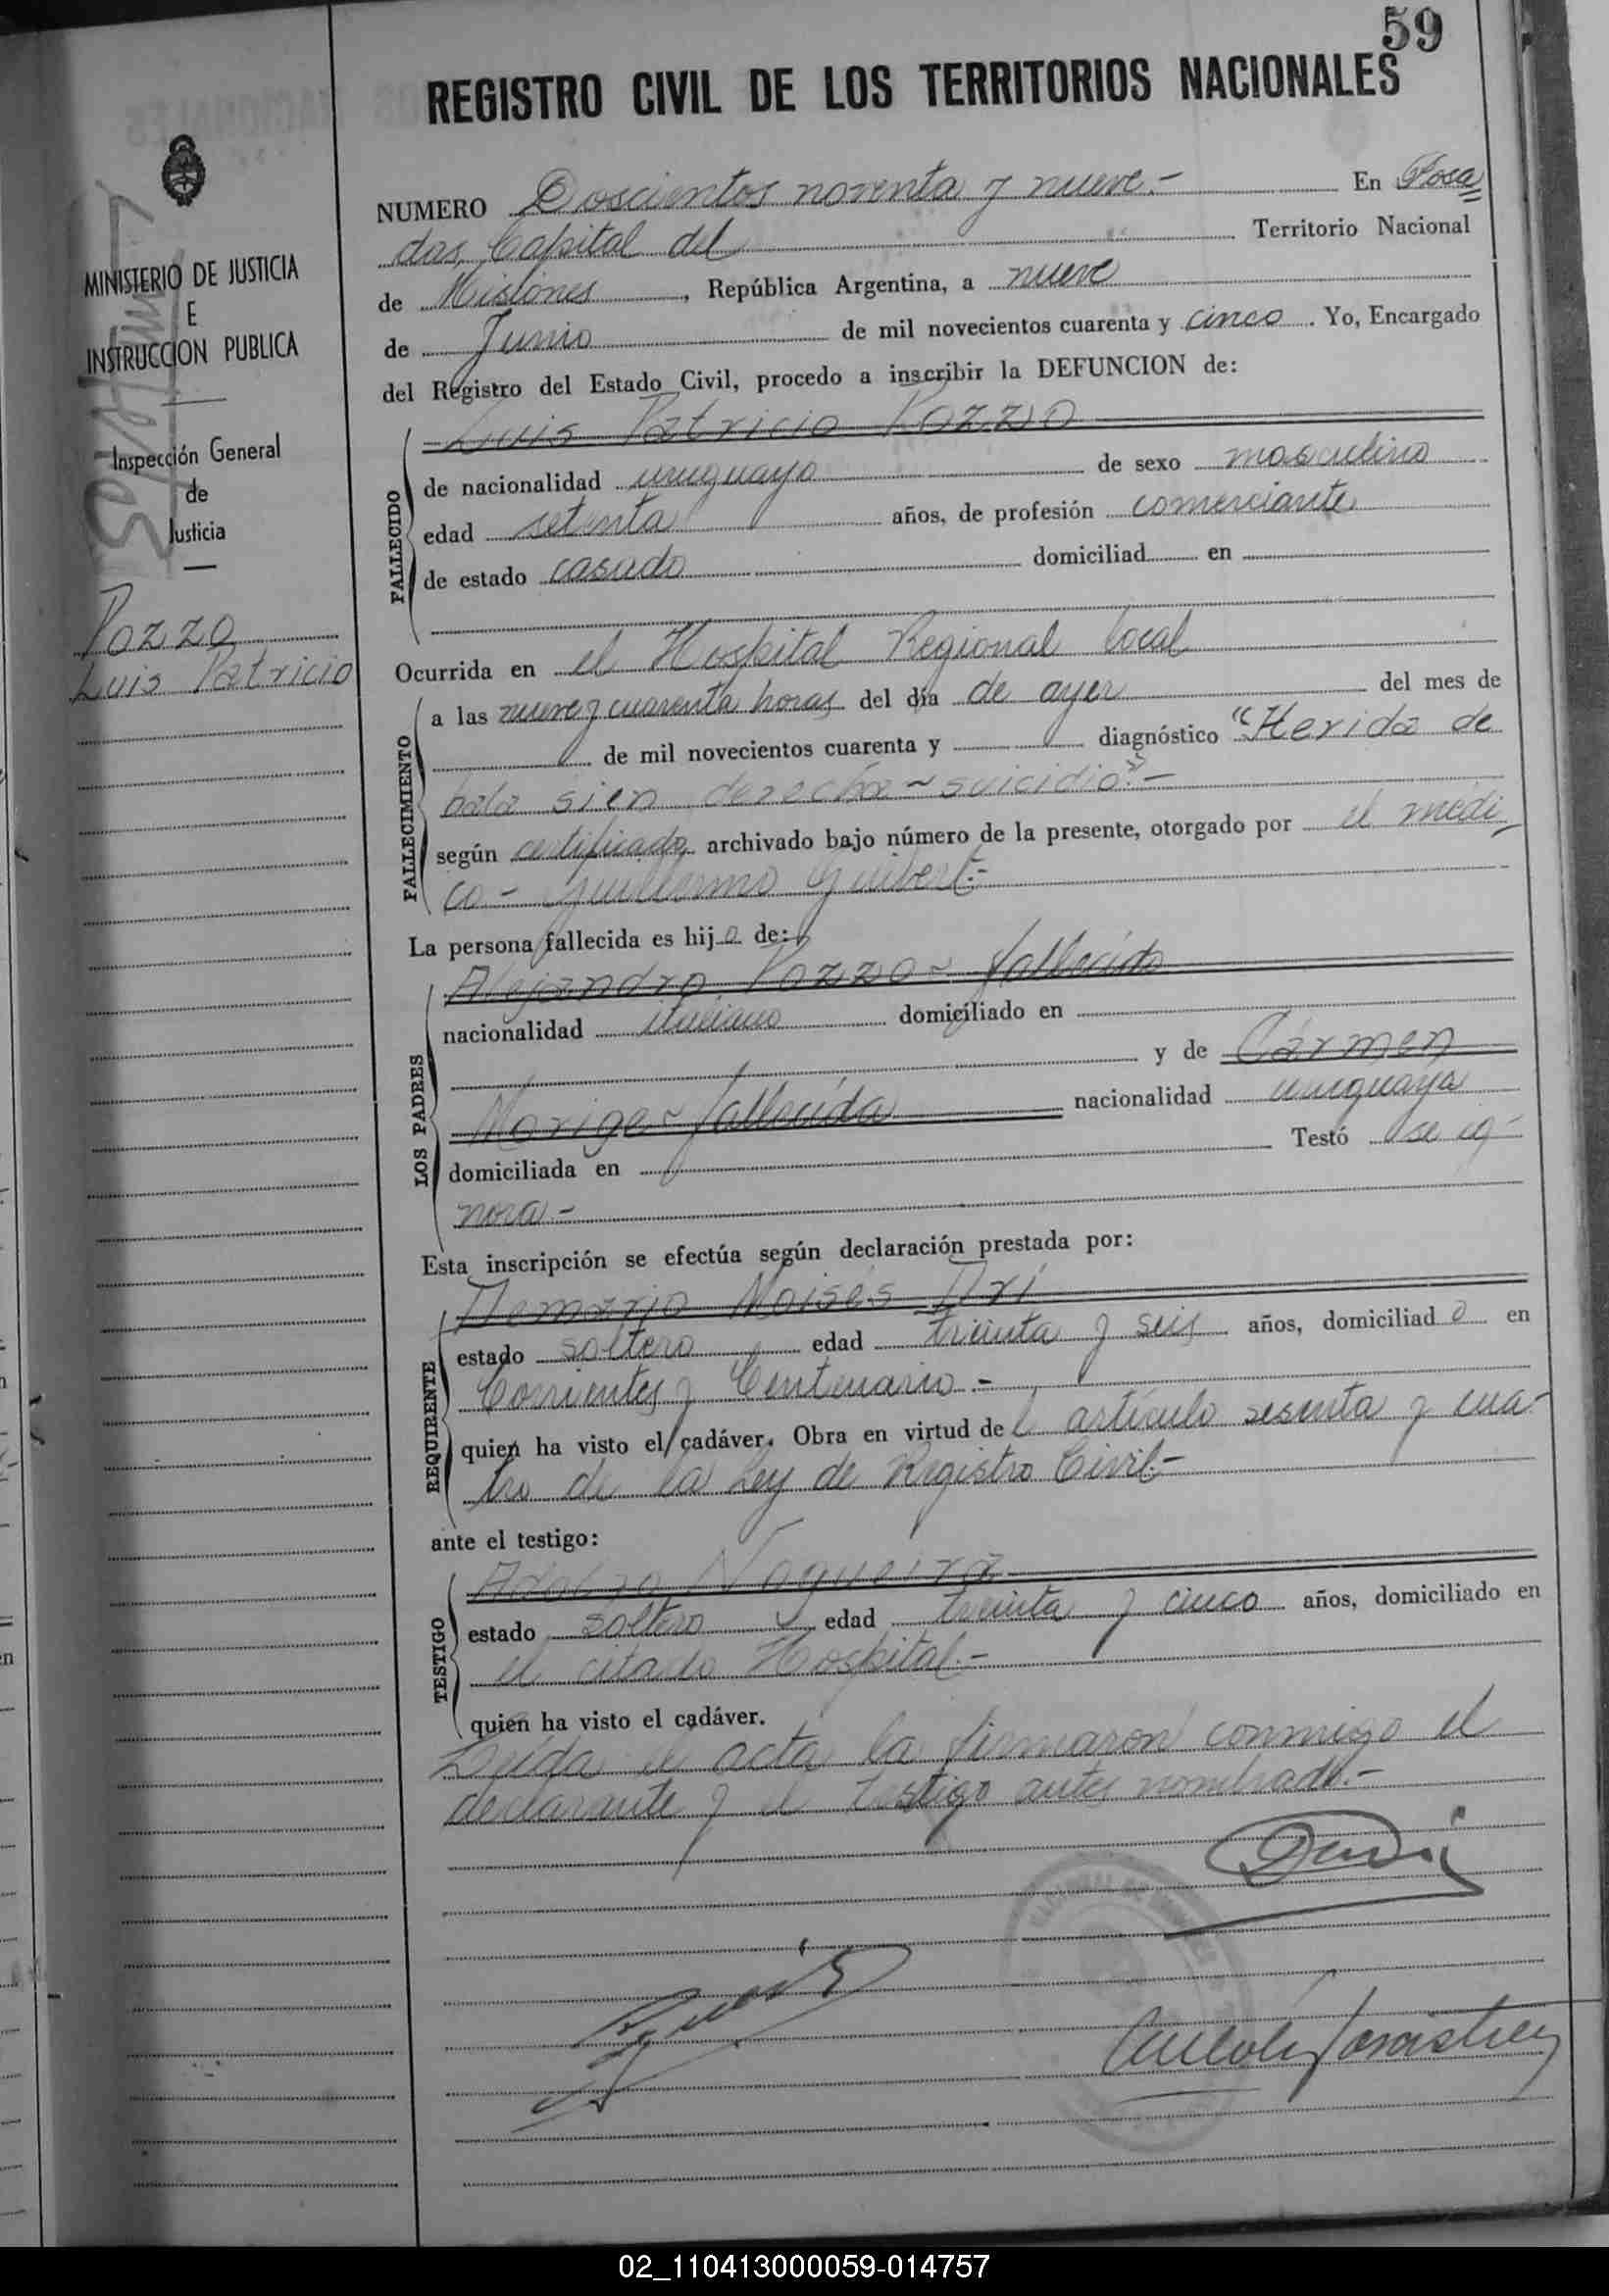 59
REGISTRO CIVIL DE LOS TERRITORIOS NACIONALES
MINISTERIO DE JUSTICIA
E
INSTRUCCION PUBLICA
Inspección General
de
Justicia
Pozzo
Luis Patricio
NUMERO Doscientos noventa y nueve.- En Posa
das, Capital del Territorio Nacional
de Misiones, República Argentina, a nueve
de Junio de mil novecientos cuarenta y cinco. Yo, Encargado
del Registro del Estado Civil, procedo a inscribir la DEFUNCION de:
FALLECIDO
Luis Patricio Pozzo
de nacionalidad uruguaya de sexo masculino
edad setenta años, de profesión comerciante
de estado casado domiciliad en
Ocurrida en el Hospital Regional local
FALLECIMIENTO
a las nueve y cuarenta horas del día de ayer del mes de
de mil novecientos cuarenta y diagnóstico "Herida de
bala sien derecha ~ suicidio".-
según certificado archivado bajo número de la presente, otorgado por el médi
co - Guillermo Guibert.-
La persona fallecida es hijo de:
LOS PADRES
Alejandro Pozzo ~ fallecido
nacionalidad italiano domiciliado en
y de Cármen
fallecida nacionalidad uruguaya
domiciliada en Testó se ig-
nora.-
Esta inscripción se efectúa según declaración prestada por:
REQUIRENTE
Moisés
estado soltero edad treinta y seis años, domiciliado en
Corrientes y Centenario.-
quien ha visto el cadáver. Obra en virtud del artículo sesenta y cua-
tro de la Ley de Registro Civil.-
ante el testigo:
TESTIGO
Nogueira
estado soltero edad treinta y cinco años, domiciliado en
el citado Hospital.-
quien ha visto el cadáver.
Leída el acta la firmaron conmigo el
declarante y el testigo antes nombrado.-
02_110413000059-014757